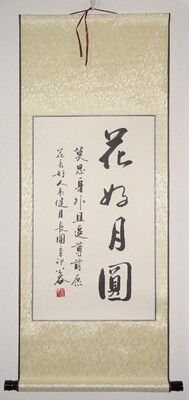 花好月圓
莫思身外且逗尊前愿
花長好人長健月長圓辛卯春